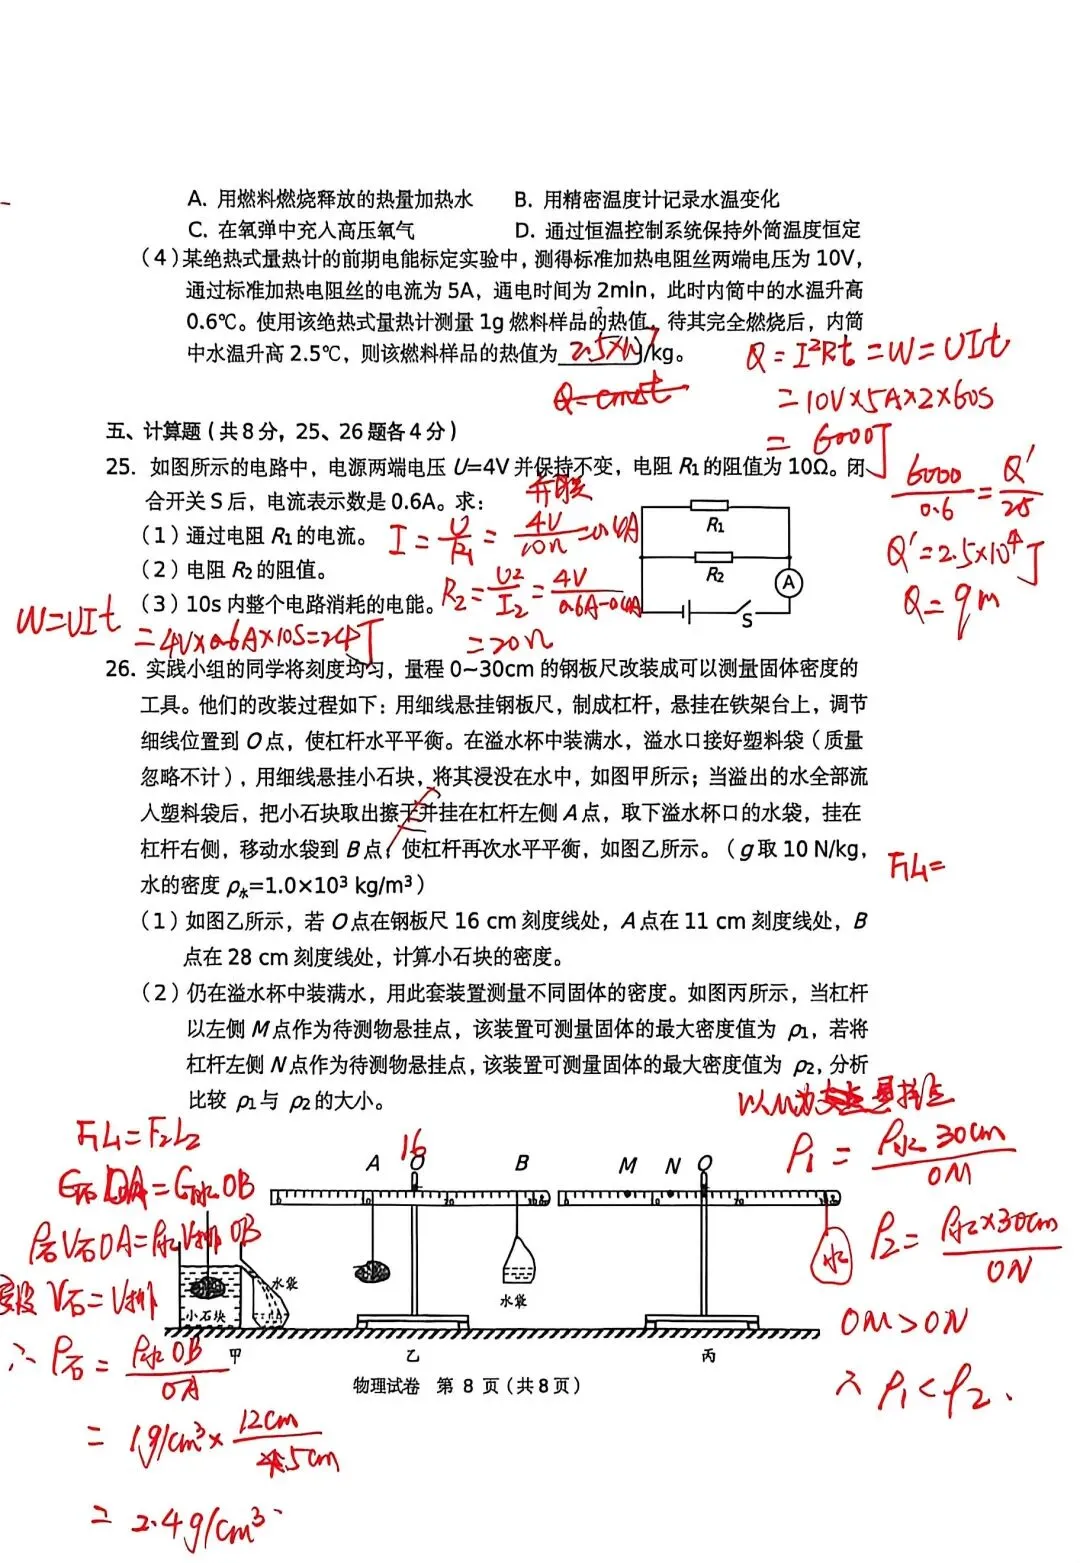 A. 用燃料燃烧释放的热量加热水 B. 用精密温度计记录水温变化
C. 在氧弹中充入高压氧气 D. 通过恒温控制系统保持外筒温度恒定
(4)某绝热式量热计的前期电能标定实验中，测得标准加热电阻丝两端电压为 10V，
通过标准加热电阻丝的电流为 5A，通电时间为 2min，此时内筒中的水温升高
0.6℃。使用该绝热式量热计测量 1g 燃料样品的热值，待其完全燃烧后，内筒
中水温升高 2.5℃，则该燃料样品的热值为 2.5×10⁷J/kg。
Q=I²Rt=W=UIt
=10V×5A×2×60S
=6000J
6000/0.6=Q′/2.5
Q′=2.5×10⁴J
Q=qm
五、计算题（共8分，25、26题各4分）
25. 如图所示的电路中，电源两端电压 U=4V 并保持不变，电阻 R₁的阻值为 10Ω。闭
合开关 S 后，电流表示数是 0.6A。求：
并联
(1)通过电阻 R₁的电流。 I=U/R₁=4V/10Ω=0.4A
(2)电阻 R₂的阻值。
R₂=U₂/I₂=4V/0.6A-0.4A
=20Ω
(3)10s 内整个电路消耗的电能。
W=UIt
=4V×0.6A×10S=24J
R₁
R₂
A
S
26. 实践小组的同学将刻度均匀，量程 0~30cm 的钢板尺改装成可以测量固体密度的
工具。他们的改装过程如下：用细线悬挂钢板尺，制成杠杆，悬挂在铁架台上，调节
细线位置到 O点，使杠杆水平平衡。在溢水杯中装满水，溢水口接好塑料袋（质量
忽略不计），用细线悬挂小石块，将其浸没在水中，如图甲所示；当溢出的水全部流
入塑料袋后，把小石块取出擦干并挂在杠杆左侧 A点，取下溢水杯口的水袋，挂在
杠杆右侧，移动水袋到 B点，使杠杆再次水平平衡，如图乙所示。（g取 10 N/kg，
水的密度 ρ水=1.0×10³ kg/m³）
F₁L₁=
(1)如图乙所示，若 O点在钢板尺 16 cm 刻度线处，A点在 11 cm 刻度线处，B
点在 28 cm 刻度线处，计算小石块的密度。
(2)仍在溢水杯中装满水，用此套装置测量不同固体的密度。如图丙所示，当杠杆
以左侧 M点作为待测物悬挂点，该装置可测量固体的最大密度值为 ρ₁，若将
杠杆左侧 N点作为待测物悬挂点，该装置可测量固体的最大密度值为 ρ₂，分析
比较 ρ₁与 ρ₂的大小。
F₁L₁=F₂L₂
G石OA=G水OB
ρ石V石OA=ρ水V排OB
V石=V排
∴ρ石=ρ水OB/OA
=1g/cm³×12cm/5cm
=2.4g/cm³
16
A O B M N O
水袋
小石块
水袋
水
甲 乙 丙
以M为 悬挂点
ρ₁=ρ水30cm/OM
ρ₂=ρ水×30cm/ON
OM>ON
∴ρ₁<ρ₂.
物理试卷 第 8 页（共8页）